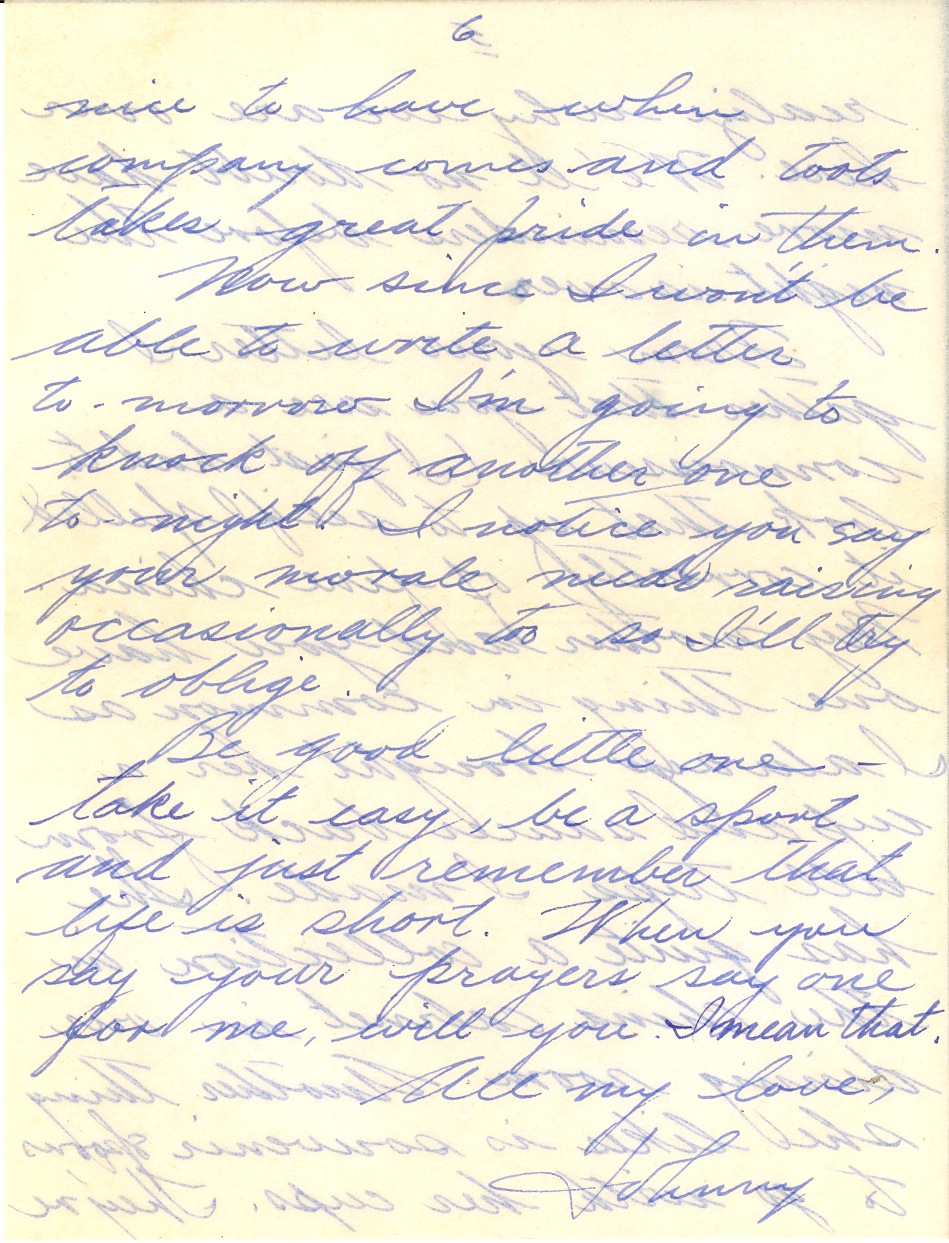 6
nice to have when
company comes and toots
takes great pride in them.
Now since I won't be
able to write a letter
to-morrow I'm going to
knock off another one
to-night. I notice you say
your morale needs raising
occasionally too so I'll try
to oblige.
Be good little one -
take it easy, be a sport
and just remember that
life is short. When you
say your prayers say one
for me, will you. I mean that.
All my love,
Johnny